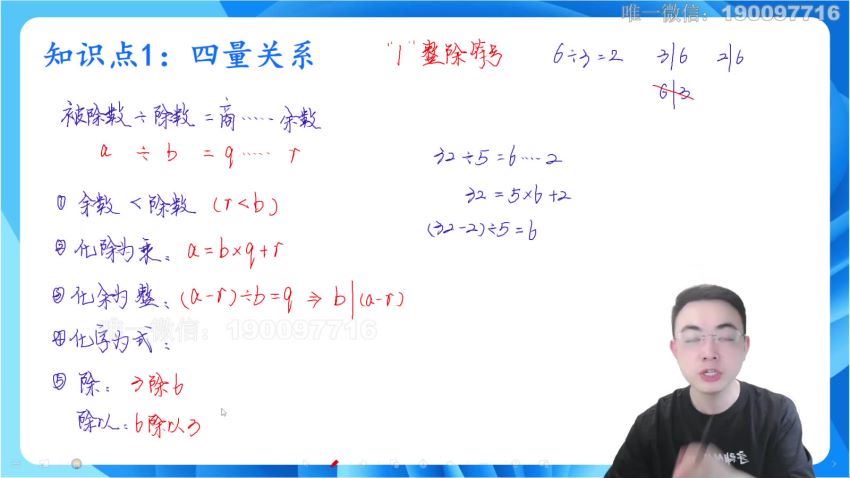 唯一微信：190097716
知识点1：四量关系
"|" 整除符号
6÷3=2 3|6 2|6
6|3
被除数÷除数=商……余数
a ÷ b = q …… r
32÷5=6……2
32=5×6+2
(32-2)÷5=6
① 余数<除数 (r<b)
② 化除为乘：a=b×q+r
③ 化余为整：(a-r)÷b=q ⇒ b|(a-r)
唯一微信：190097716
④ 化字为式：
⑤ 除：3除6
除以：6除以3